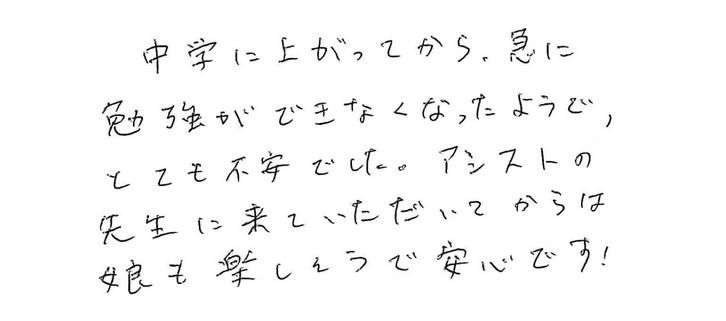 中学に上がってから、急に
勉強ができなくなったようで、
とても不安でした。アシストの
先生に来ていただいてからは
娘も楽しそうで安心です!